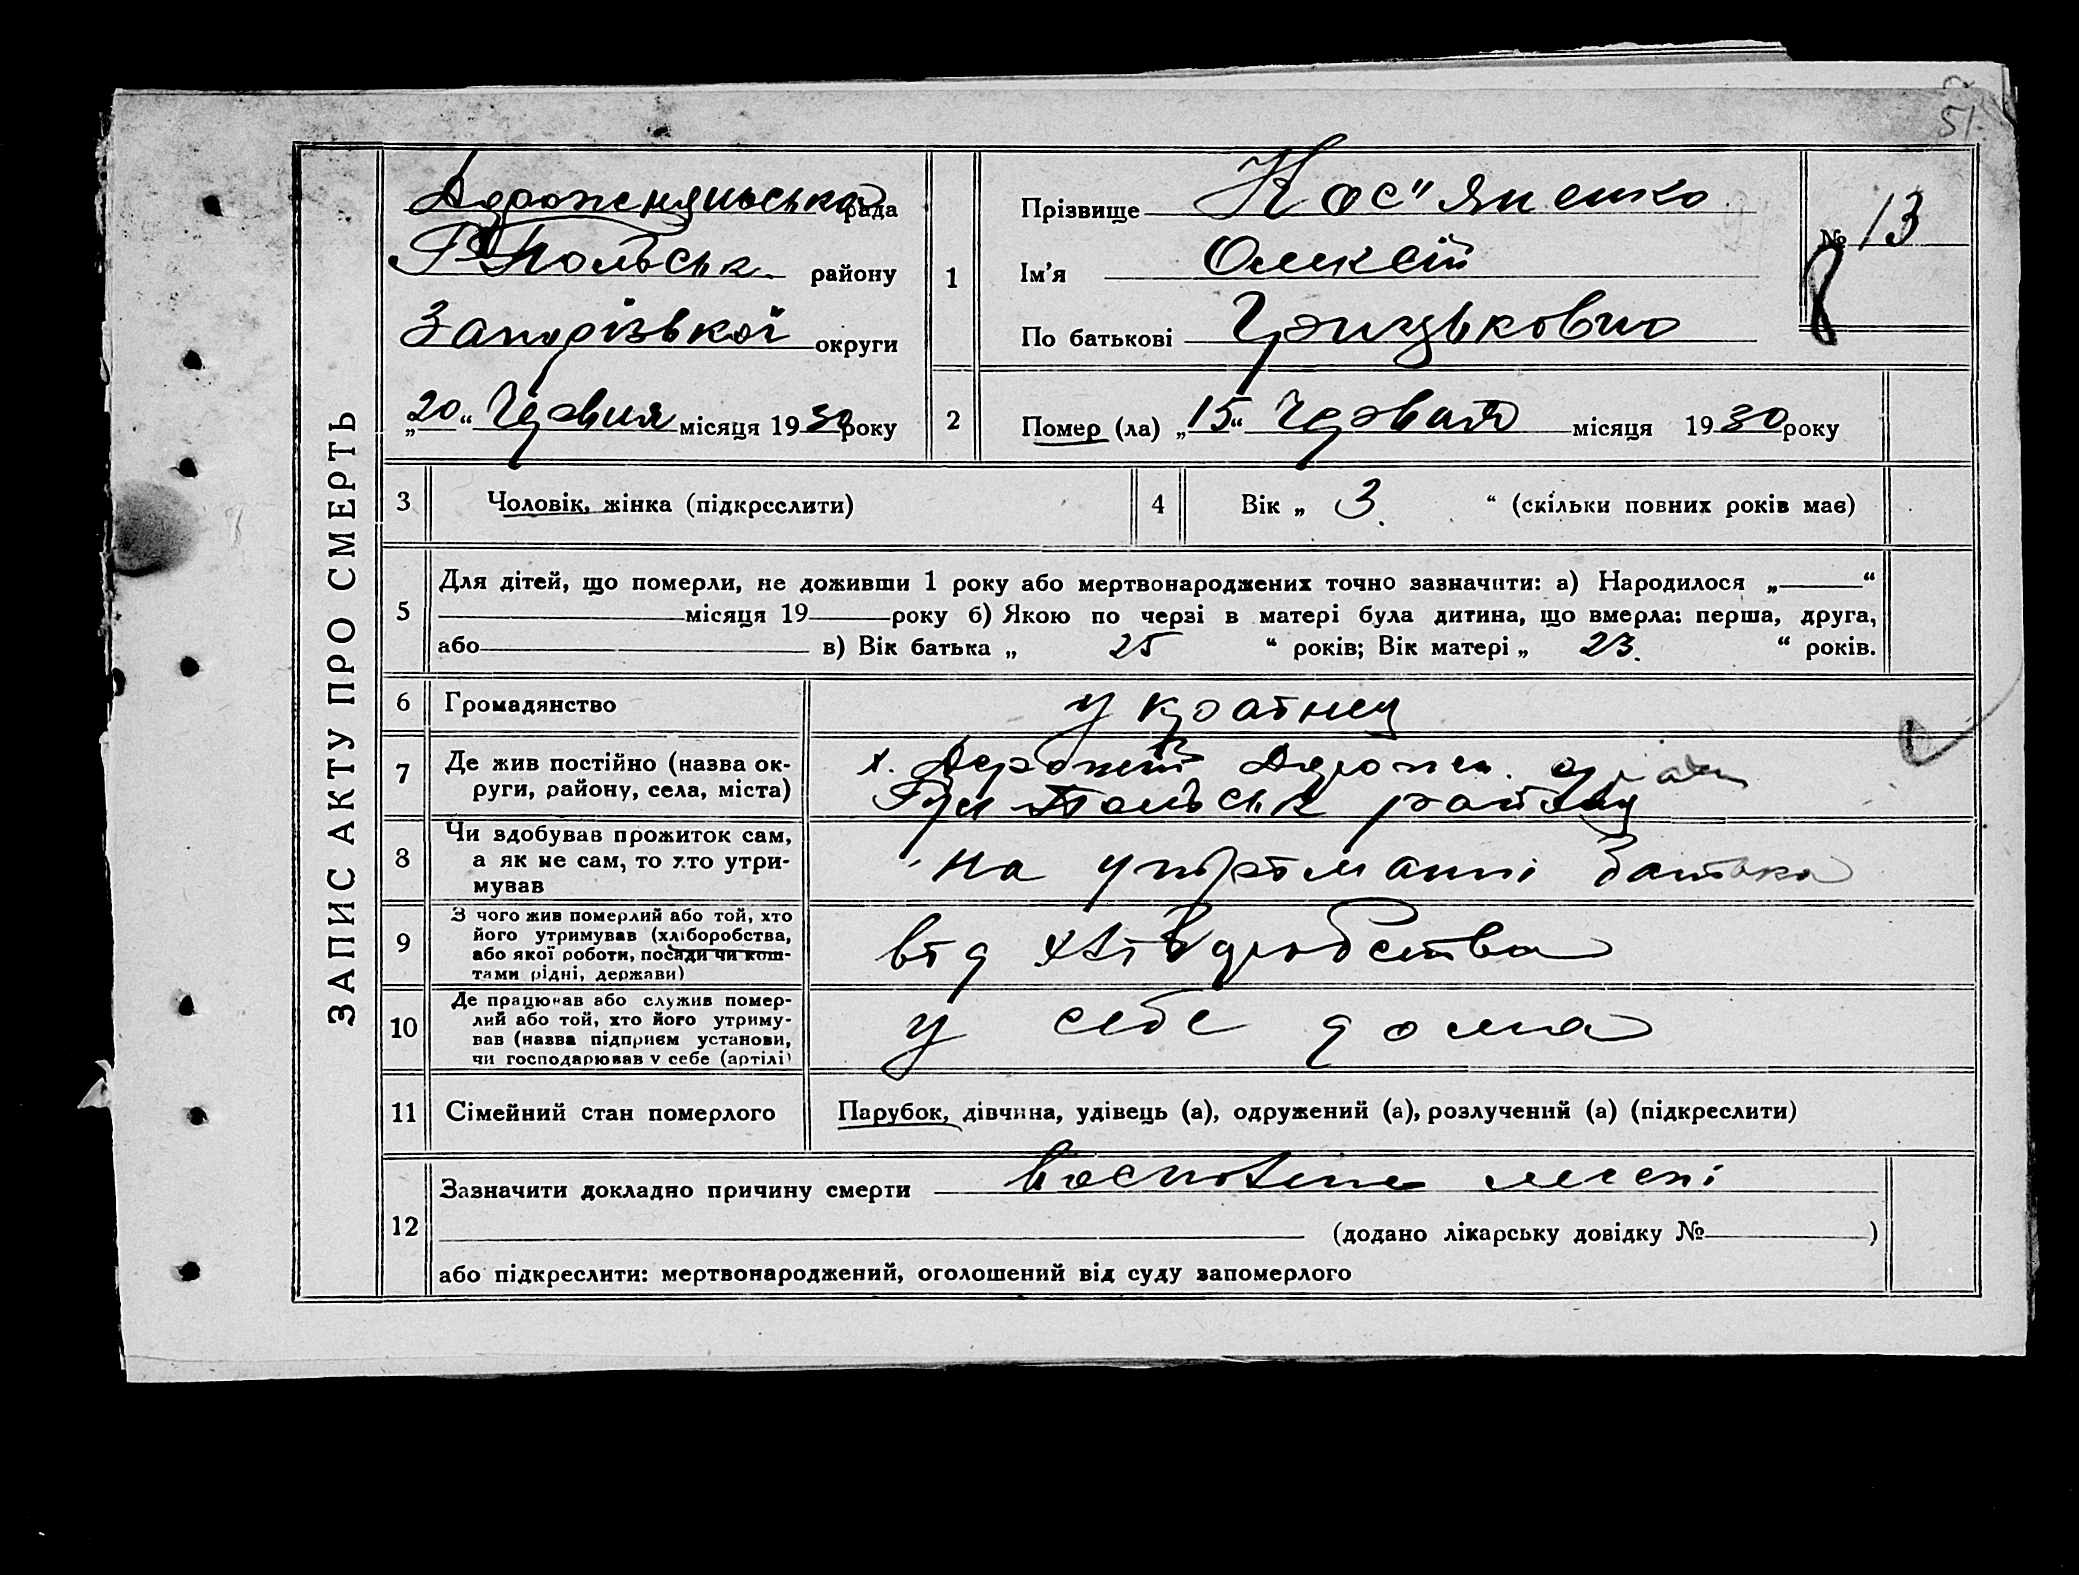 51.
ЗАПИС АКТУ ПРО СМЕРТЬ
рада
району
Запорізької округи
„20“ Червня місяця 1930 року
1
Прізвище Кос"яненко
Ім’я Олексій
По батькові Грицькович
№ 13
8
2
Помер (ла) „15“ Червня місяця 1930 року
3
Чоловік, жінка (підкреслити)
4
Вік „ 3 “ (скільки повних років має)
5
Для дітей, що померли, не доживши 1 року або мертвонароджених точно зазначити: а) Народилося „ “
місяця 19 року б) Якою по черзі в матері була дитина, що вмерла: перша, друга,
або в) Вік батька „ 25 “ років; Вік матері „ 23. “ років.
6
Громадянство
украінец
7
Де жив постійно (назва ок-
руги, району, села, міста)
х.
району
8
Чи вдобував прожиток сам,
а як не сам, то хто утри-
мував
на утріманні батька
9
З чого жив померлий або той, хто
його утримував (хліборобства,
або якої роботи, посади чи кош-
тами рідні, держави)
від хліборобства
10
Де працював або служив помер-
лий або той, хто його утриму-
вав (назва підприєм установи,
чи господарював у себе (артілі)
у себе дома
11
Сімейний стан померлого
Парубок, дівчина, удівець (а), одружений (а), розлучений (а) (підкреслити)
12
Зазначити докладно причину смерти
(додано лікарську довідку № )
або підкреслити: мертвонароджений, оголошений від суду запомерлого